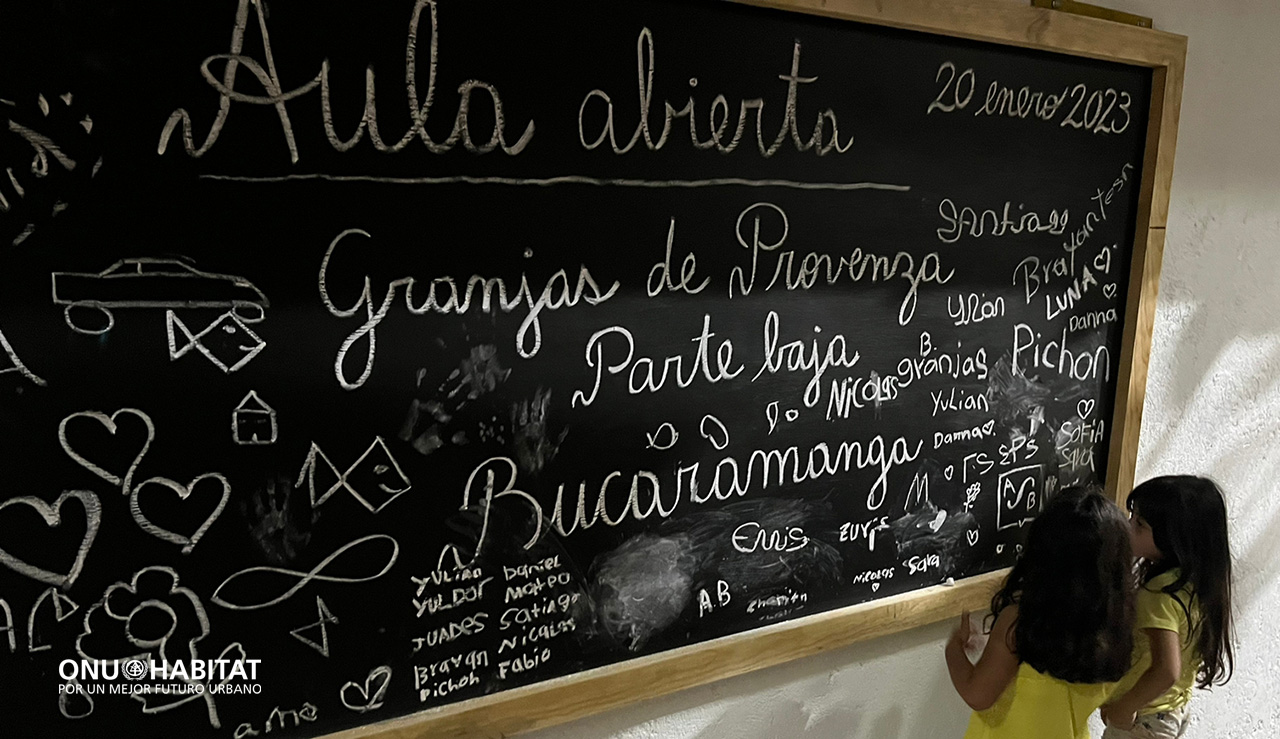 Aula abierta
20 enero 2023
Granjas de Provenza
Parte baja
Bucaramanga
Santiago
LUNA
Danna
B.
granjas
Pichon
Nicolas
Yulian
Danna
SOFiA
EPS
M
A
B
zurji
Nicolas
Sara
A.B
Yulian Daniel
YULDOr Mateo
JUADES
Nicolas
Brayan
Pichon Fabio
amo
ONU HABITAT
POR UN MEJOR FUTURO URBANO